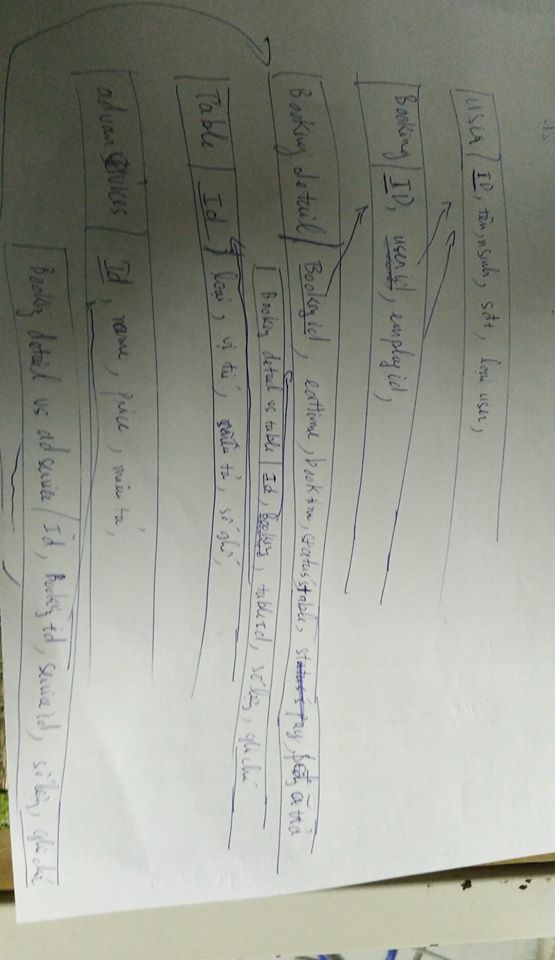 USER ID, tên, nsinh, sđt, loại user,
Booking ID, user id, employ id,
Booking detail Booking id, eattime, book time, status table, status pay,
Booking detail vs table Id, Booking, tableId, số lượng, ghi chú
Table Id loại, vị trí, miêu tả, số ghế,
advan services Id, name, price, miêu tả,
Booking detail vs ad service Id, Booking id, service id, số lượng, ghi chú